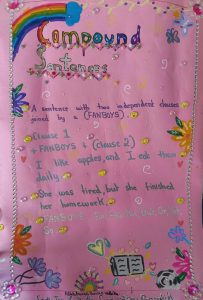 Compound
Sentences
A sentence with two independent clauses
joined by a (FANBOYS)
Clause 1
+ FANBOYS + (Clause 2)
I like apples, and I eat them
daily
She was tired, but she finished
her homework.
FANBOYS: For, But, Or,
So